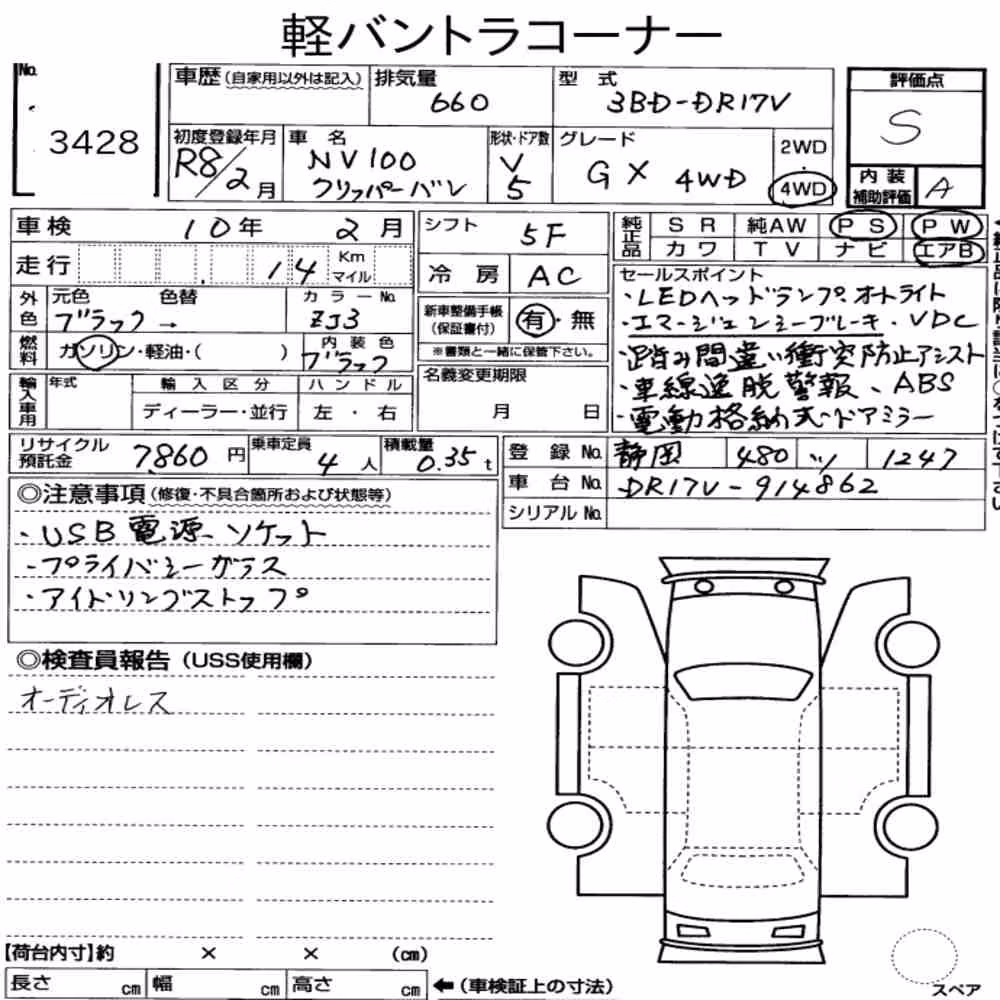 軽バントラコーナー
No.
3428
車歴 (自家用以外は記入)
排気量
660
型式
3BD-DR17V
評価点
S
初度登録年月
R8/2月
車名
NV100
クリッパーバン
形状・ドア数
V
5
グレード
GX 4WD
2WD
・
4WD
内装
補助評価
A
車検 10年 2月
シフト
5F
純正品
SR 純AW PS PW
カワ TV ナビ エアB
走行 14 Km
マイル
冷房 AC
セールスポイント
・LEDヘッドランプ.オートライト
・エマージェンシーブレーキ・VDC
・踏み間違い衝突防止アシスト
・車線逸脱警報、ABS
・電動格納式ドアミラー
外色
元色 色替
ブラック→
カラーNo.
ZJ3
新車整備手帳
(保証書付)
有・無
※書類と一緒に保管下さい。
燃料
ガソリン・軽油・( )
内装色
ブラック
名義変更期限
月 日
輸入車用
年式
輸入区分
ディーラー・並行
ハンドル
左・右
リサイクル
預託金
7,860円
乗車定員
4人
積載量
0.35t
登録No. 静岡 480 ツ 1247
車台No. DR17V-914862
シリアルNo.
◎注意事項(修復・不具合箇所および状態等)
・USB電源ソケット
・プライバシーガラス
・アイドリングストップ
◎検査員報告(USS使用欄)
オーディオレス
【荷台内寸】約 × × (cm)
長さ cm 幅 cm 高さ cm ←(車検証上の寸法)
スペア